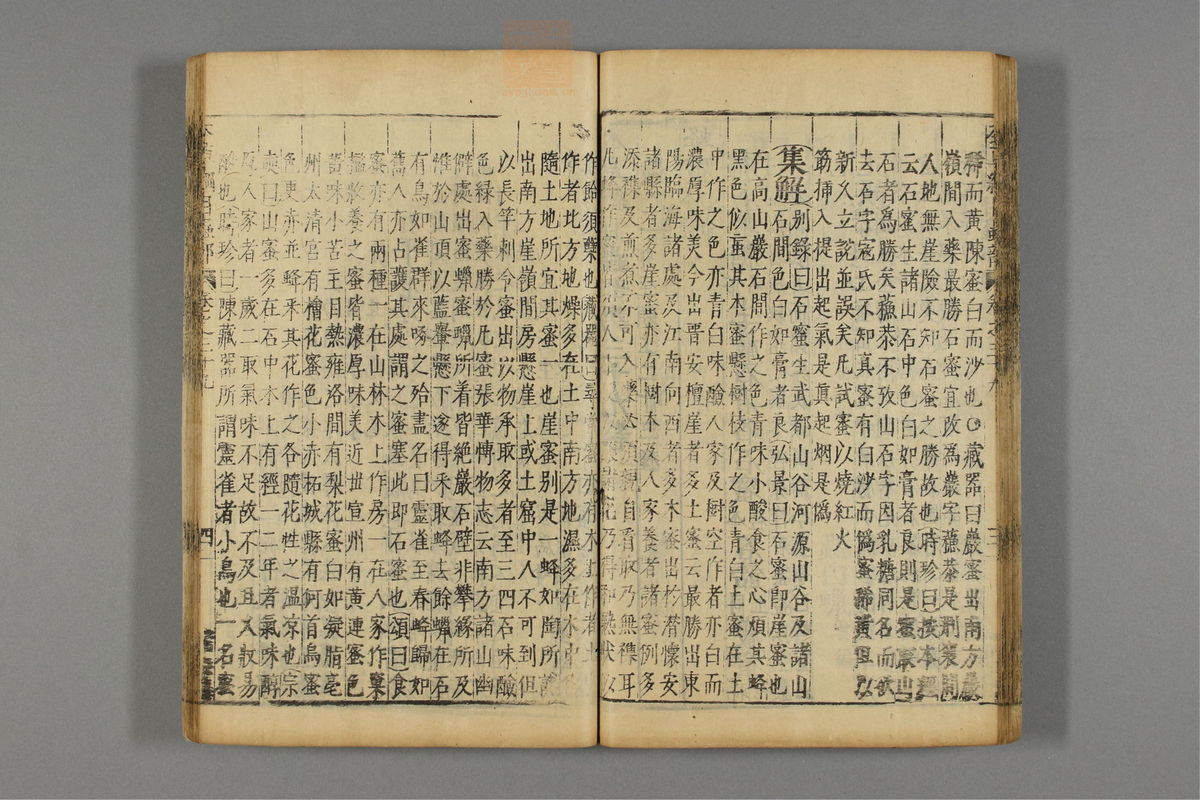 稀而黃陳蜜白而沙也○藏器曰巖蜜出南方巖
嶺間入藥最勝石蜜宜改為巖字蘇恭是荆襄間
人地無崖險不知石蜜之勝故也時珍曰按本經
云石蜜生諸山石中色白如膏者良則是蜜取山
石者為勝矣蘇恭不攷山石字因乳糖同名而欲
去石字寇氏不知真蜜有白沙而偽蜜稀黃但以
新久立說並誤矣凡試蜜以燒紅火
筯插入提出起氣是真起烟是偽
集解別錄曰石蜜生武都山谷河源山谷及諸山
石間色白如膏者良弘景曰石蜜即崖蜜也
在高山巖石間作之色青味小酸食之心煩其蜂
黑色似䖟其木蜜懸樹枝作之色青白土蜜在土
中作之色亦青白味醶人家及樹空作者亦白而
濃厚味美今出晉安檀崖者多土蜜云最勝出東
陽臨海諸處及江南向西者多木蜜出於潛懷安
諸縣者多崖蜜亦有樹木及人家養者諸蜜例多
添雜及煎煮不可入藥必須親自看取乃無雜耳
凡蜂作蜜皆須人小便以釀諸花乃得和熟狀以
作飴須糵也藏器曰尋常蜜亦有木上作者土中
作者北方地燥多在土中南方地濕多在木中各
隨土地所宜其蜜一也崖蜜別是一蜂如陶所說
出南方崖嶺間房懸崖上或土窟中人不可到但
以長竿刺令蜜出以物承取多者至三四石味醶
色緑入藥勝於凡蜜張華博物志云南方諸山幽
僻處出蜜蠟蜜蠟所着皆絶巖石壁非攀緣所及
惟於山頂以藍轝懸下遂得采取蜂去餘蠟在石
有鳥如雀群來啄之殆盡名曰靈雀至春蜂歸如
舊人亦占護其處謂之蜜塞此即石蜜也頌曰食
蜜亦有兩種一在山林木上作房一在人家作窠
檻收養之蜜皆濃厚味美近世宣州有黃連蜜色
黃味小苦主目熱雍洛間有梨花蜜白如凝脂亳
州太清宮有檜花蜜色小赤柘城縣有何首烏蜜
色更赤並蜂采其花作之各隨花性之温凉也宗
奭曰山蜜多在石中木上有經一二年者氣味醇
厚人家者一歲二取氣味不足故不及且久收易
酸也時珍曰陳藏器所謂靈雀者小鳥也一名蜜